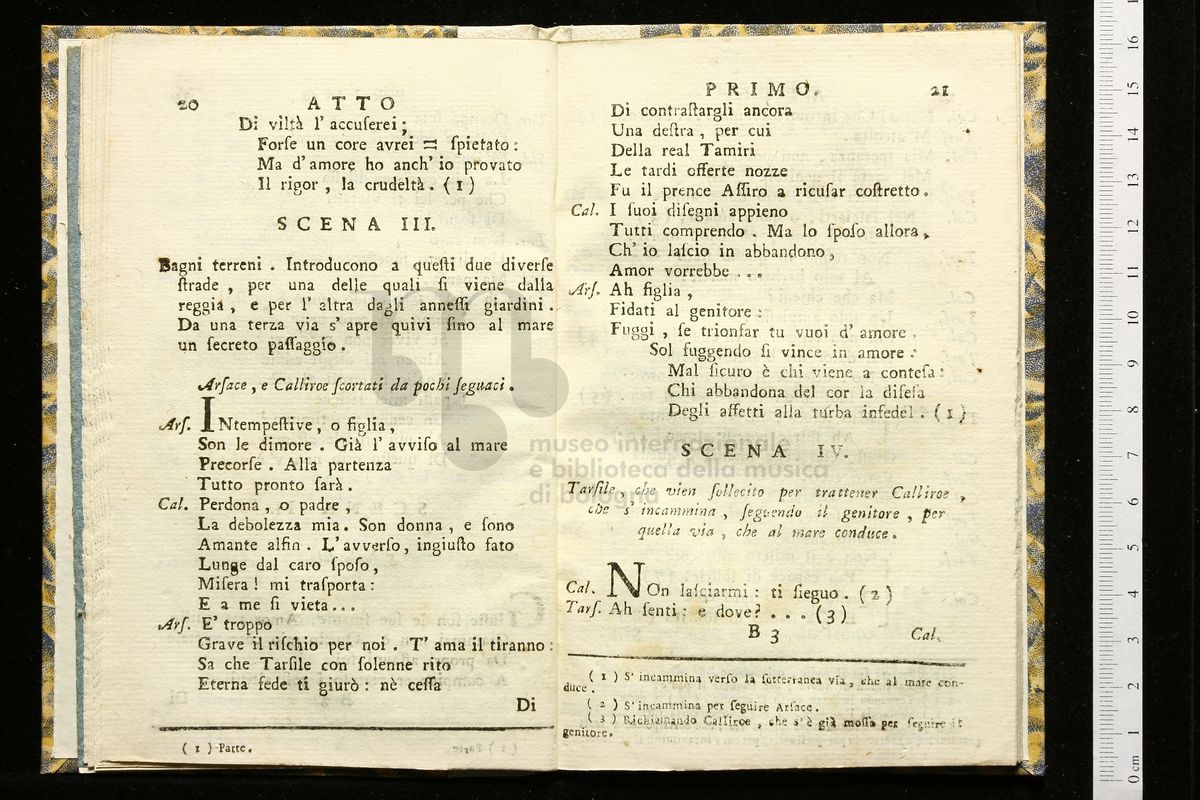 20 ATTO
Di viltà l' accuſerei;
Forſe un core avrei = ſpietato:
Ma d'amore ho anch' io provato
Il rigor, la crudeltà. (1)
SCENA III.
Bagni terreni. Introducono a queſti due diverſe
ſtrade, per una delle quali ſi viene dalla
reggia, e per l' altra dagli anneſſi giardini.
Da una terza via s' apre quivi ſino al mare
un ſecreto paſſaggio.
Arſace, e Calliroe ſcortati da pochi ſeguaci.
Arſ. INtempeſtive, o figlia,
Son le dimore. Già l' avviſo al mare
Precorſe. Alla partenza
Tutto pronto ſarà.
Cal. Perdona, o padre,
La debolezza mia. Son donna, e ſono
Amante alfin. L'avverſo, ingiuſto fato
Lunge dal caro ſpoſo,
Miſera! mi traſporta:
E a me ſi vieta...
Arſ. E' troppo
Grave il riſchio per noi. T' ama il tiranno:
Sa che Tarſile con ſolenne rito
Eterna fede ti giurò: nè ceſſa
Di
(1) Parte.
PRIMO. 21
Di contraſtargli ancora
Una deſtra, per cui
Della real Tamiri
Le tardi offerte nozze
Fu il prence Aſſiro a ricuſar coſtretto.
Cal. I ſuoi diſegni appieno
Tutti comprendo. Ma lo ſpoſo allora,
Ch' io laſcio in abbandono,
Amor vorrebbe...
Arſ. Ah figlia,
Fidati al genitore:
Fuggi, ſe trionfar tu vuoi d' amore.
Sol fuggendo ſi vince in amore:
Mal ſicuro è chi viene a conteſa:
Chi abbandona del cor la difeſa
Degli affetti alla turba infedel. (1)
SCENA IV.
Tarſile, che vien ſollecito per trattener Calliroe,
che s' incammina, ſeguendo il genitore, per
quella via, che al mare conduce.
Cal. NOn laſciarmi: ti ſieguo. (2)
Tarſ. Ah ſenti: e dove?... (3)
B 3 Cal.
(1) S' incammina verſo la ſotterranea via, che al mare con-
duce.
(2) S' incammina per ſeguire Arſace.
(3) Richiamando Calliroe, che s' è già moſſa per ſeguire il
genitore.
museo internazionale
e biblioteca della musica
di bologna
0 cm 1 2 3 4 5 6 7 8 9 10 11 12 13 14 15 16